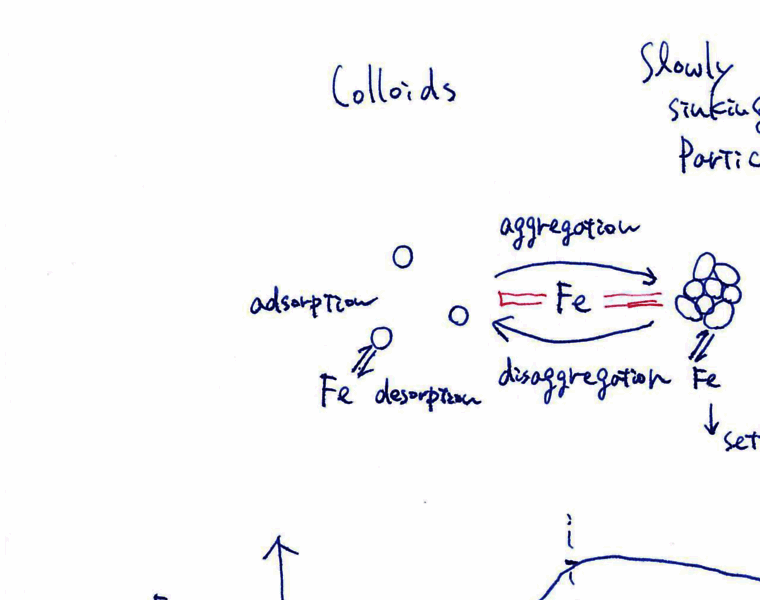 Colloids
Slowly
sinking
Partic
aggregation
adsorption
Fe
disaggregation
Fe
desorption
Fe
set